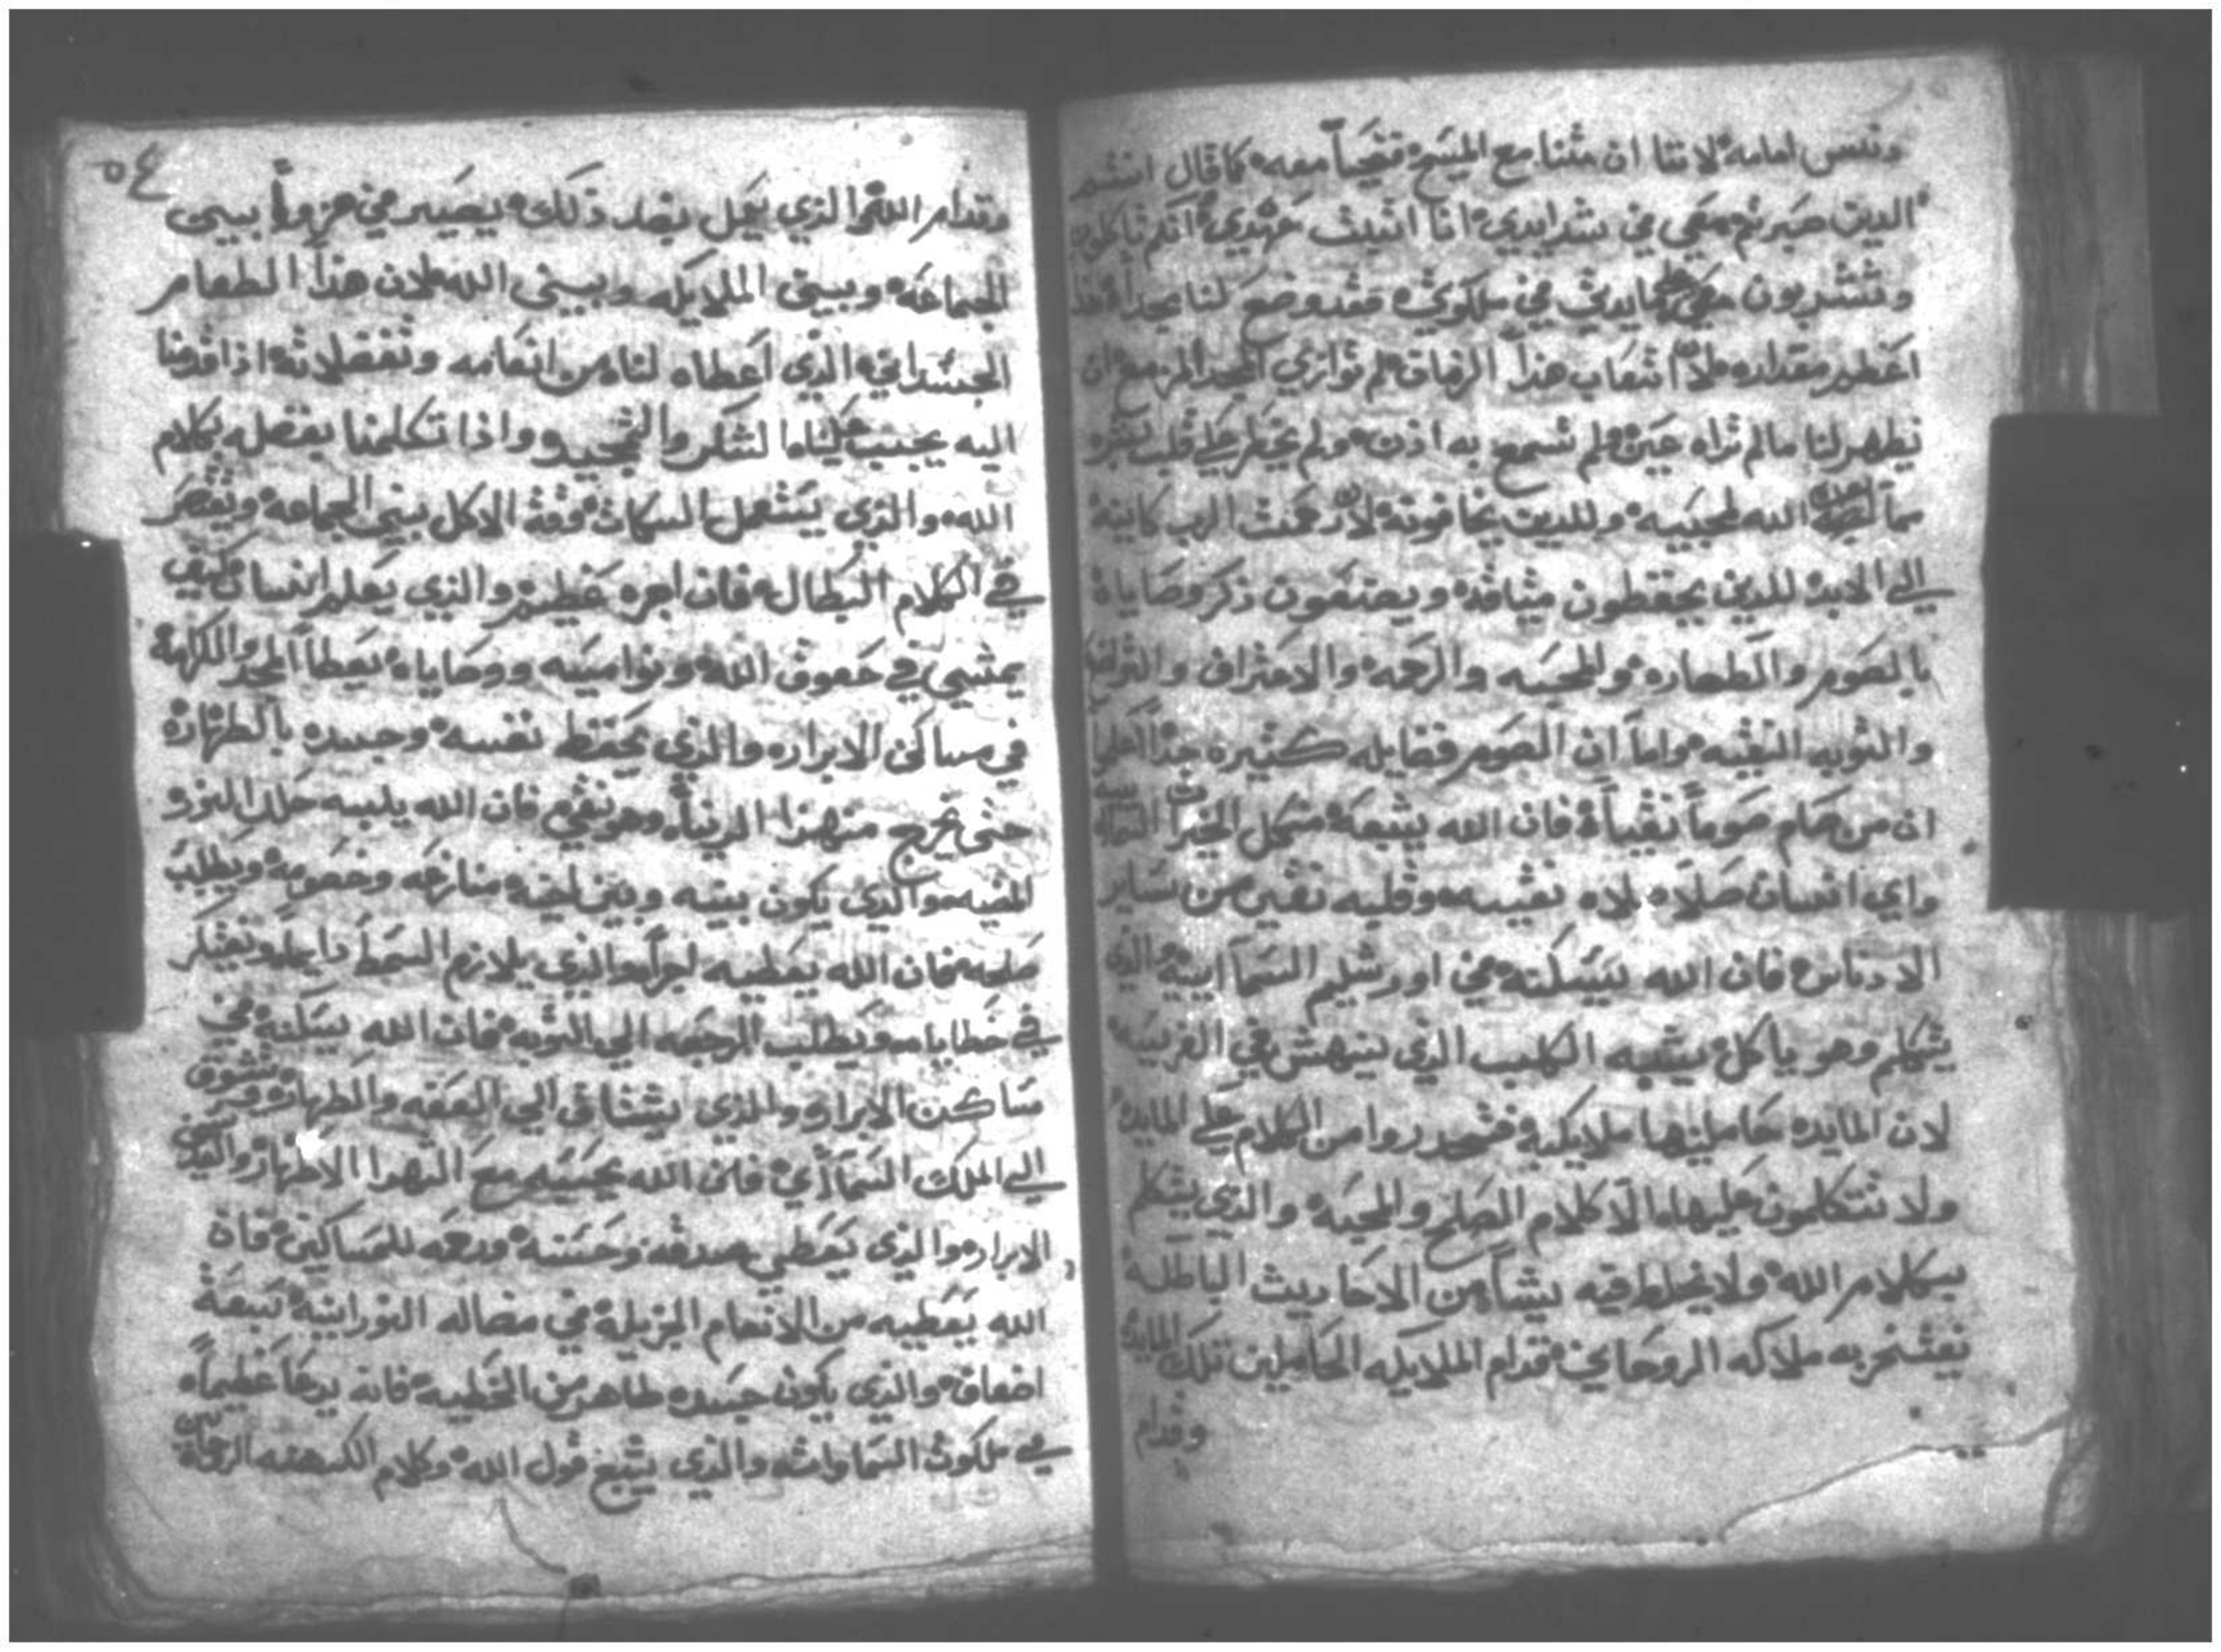 وننسى امامه لاننا ان متنا مع المسيح فنحيا معه كما قال انتم
الدين صبرتم معي في شدايدي انا اثبت عهدي انكم تاكلون
وتشربون معي علي مايدتي في ملكوتي فقد وضع لنا مجدا
اعظم مقداره لان اتعاب هذا الزمان لم توازي المجد المزمع ان
يظهر لنا مالم تراه عين ولم تسمع به اذن ولم يخطر علي قلب بشر
ما اعده الله لمحبيه وللدين يخافونه لان رحمت الرب كاينة
الي الابد للدين يحفظون ميثاقه ويصنعون ذكر وصاياه
بالصوم والطهاره والمحبه والرحمه والاعتراف
والتوبه النقيه واما ان الصوم فضايله كثيره جدا
ان من صام صوما نقيا فان الله يشبعه من كل الخيرات
واي انسان صلا صلاه نقييه وقلبه نقي من ساير
الادناس فان الله يسكنه في اورشليم السمآاييه والذي
يتكلم وهو ياكل يشبه الكلب الذي ينهش في الفريسه
لان المايده حاملينها ملايكة فتحدروا من الكلام علي المايده
ولا تتكلمون عليها الا كلام الصلح والمحبه والذي يتكلم
بكلام الله ولا يخلط فيه شيا من الاحاديث الباطلة
يفتخر به ملاكه الروحاني قدام الملايكه الحاملين تلك المايدة
وقدام
٥٤
وقدام الله والذي يعمل بضد ذلك يصير في هزوا بين
الجماعه وبين الملايكه وبين الله لان هذا الطعام
الجسداني الذي اعطاه لنا من انعامه وتفضلاته اذا قدمنا
اليه يجب علينا الشكر والتمجيد واذا تكلمنا بفضله بكلام
الله والذي يستعمل السكات وقت الاكل بين الجماعه ويقصر
في الكلام البطال فان اجره عظيم والذي يعلم انسان كيف
يمشي في حقوق الله ونواميسه ووصاياه يعطا المجد والكرامة
في مساكن الابرار والذي يحفظ نفسه وجسده بالطهارة
حتى يخرج من هذا الدنيا وهو نقي فان الله يلبسه حلل النور
المضيه والذي يكون بينه وبين اخيه منازعه وخصومة ويطلب
صلحه فان الله يعطيه اجرا والذي يلازم السخط دايما ويفتكر
في خطاياه ويطلب الرجعه الي التوبه فان الله يسكنه في
مساكن الابرار والذي يشتاق الي العفه والطهاره ويتشوق
الي الملك السمآآئي فان الله يحسبه مع الشهدا الاطهار والقديسين
الابرار والذي يعطي صدقه وحسنه ورحمه للمساكين فان
الله يعطيه من الانعام الجزيلة في مضاله النورانية سبعة
اضعاف والذي يكون جسده طاهر من الخطيه فانه يدعا عظيما
في ملكوت السماوات والذي يتبع قول الله وكلام الكهنه